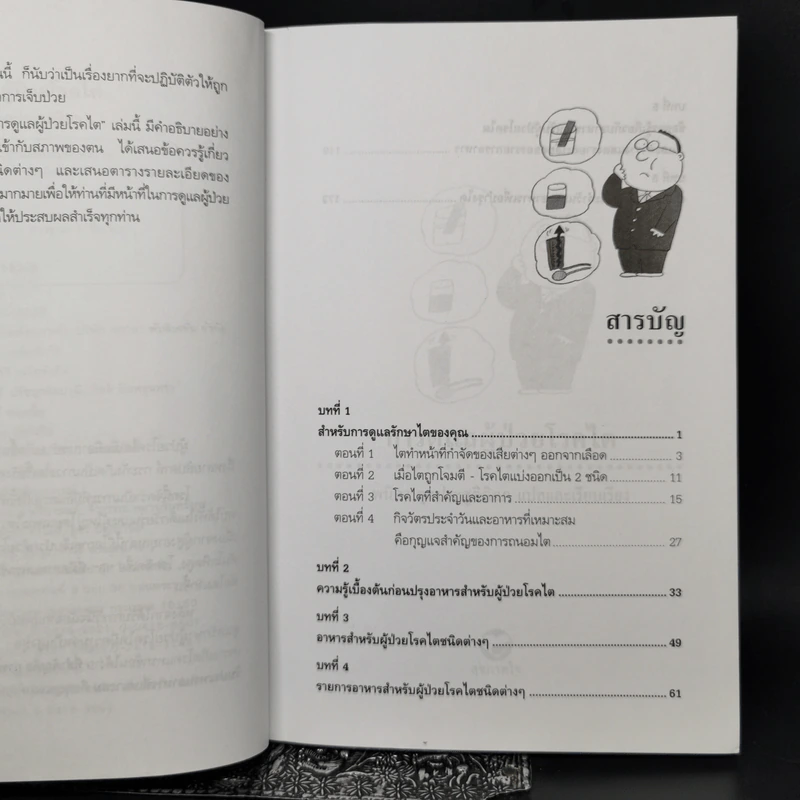 นนี้ ก็นับว่าเป็นเรื่องยากที่จะปฏิบัติตัวให้ถูก
การเจ็บป่วย
การดูแลผู้ป่วยโรคไต" เล่มนี้ มีคำอธิบายอย่าง
เข้ากับสภาพของตน ได้เสนอข้อควรรู้เกี่ยว
นิดต่างๆ และเสนอตารางรายละเอียดของ
มากมายเพื่อให้ท่านที่มีหน้าที่ในการดูแลผู้ป่วย
ให้ประสบผลสำเร็จทุกท่าน
สารบัญ
บทที่ 1
สำหรับการดูแลรักษาไตของคุณ ........ 1
ตอนที่ 1 ไตทำหน้าที่กำจัดของเสียต่างๆ ออกจากเลือด ........ 3
ตอนที่ 2 เมื่อไตถูกโจมตี - โรคไตแบ่งออกเป็น 2 ชนิด ........ 11
ตอนที่ 3 โรคไตที่สำคัญและอาการ ........ 15
ตอนที่ 4 กิจวัตรประจำวันและอาหารที่เหมาะสม
คือกุญแจสำคัญของการถนอมไต ........ 27
บทที่ 2
ความรู้เบื้องต้นก่อนปรุงอาหารสำหรับผู้ป่วยโรคไต ........ 33
บทที่ 3
อาหารสำหรับผู้ป่วยโรคไตชนิดต่างๆ ........ 49
บทที่ 4
รายการอาหารสำหรับผู้ป่วยโรคไตชนิดต่างๆ ........ 61